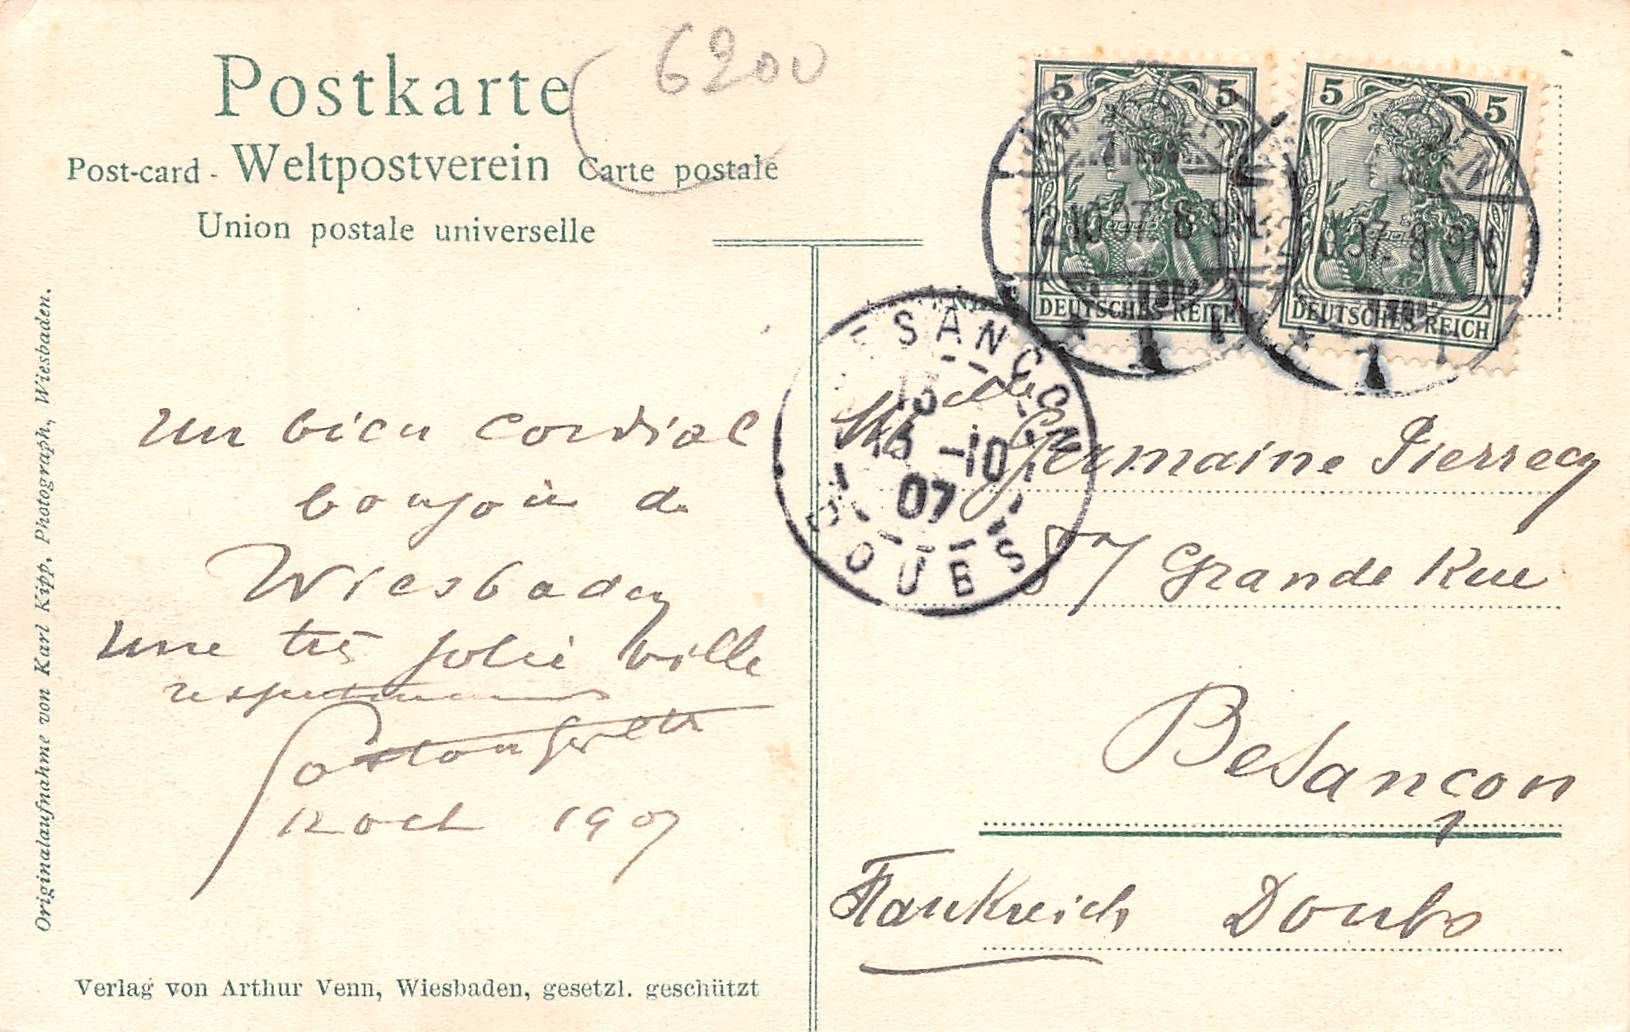 Postkarte
6200
Post-card - Weltpostverein Carte postale
Union postale universelle
5 5
DEUTSCHES REICH
5 5
DEUTSCHES REICH
12.10.07. 8-9N.
07. 8-9N
BESANÇON
13
13 -10
07
DOUBS
Un bien cordial
bonjour de
Wiesbaden
une très jolie ville
12 oct 1907
Mlle Germaine
57 Grande Rue
Besançon
Frankreich Doubs
Originalaufnahme von Karl Kipp, Photograph, Wiesbaden.
Verlag von Arthur Venn, Wiesbaden, gesetzl. geschützt